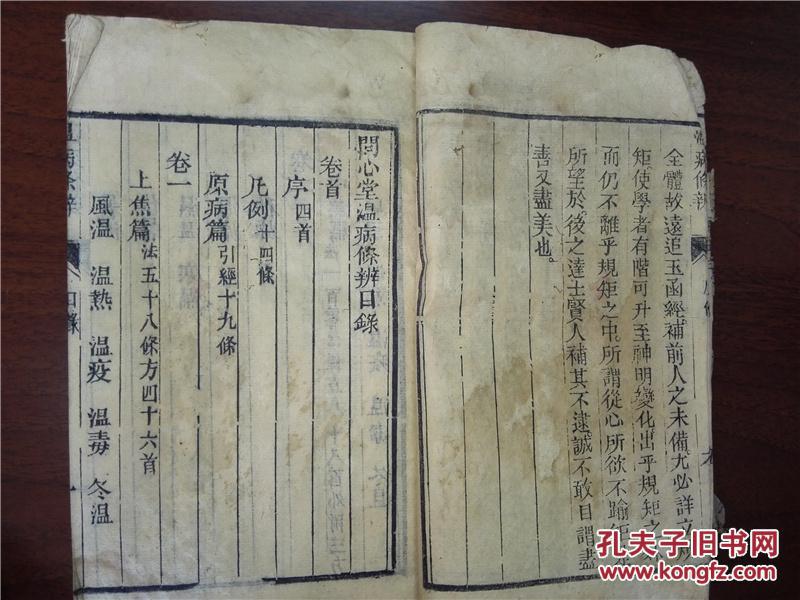 溫病條辨
全體故遠追玉函經補前人之未備尤必詳立
矩使學者有階可升至神明變化出乎規矩之
而仍不離乎規矩之中所謂從心所欲不踰
所望於後之達士賢人補其不逮誠不敢自謂盡
善又盡美也
問心堂溫病條辨目錄
卷首
序四首
凡例十四條
原病篇引經十九條
卷一
上焦篇法五十八條方四十六首
風溫 溫熱 溫疫 溫毒 冬溫
溫病條辨 目錄 一
孔夫子旧书网
www.kongfz.com